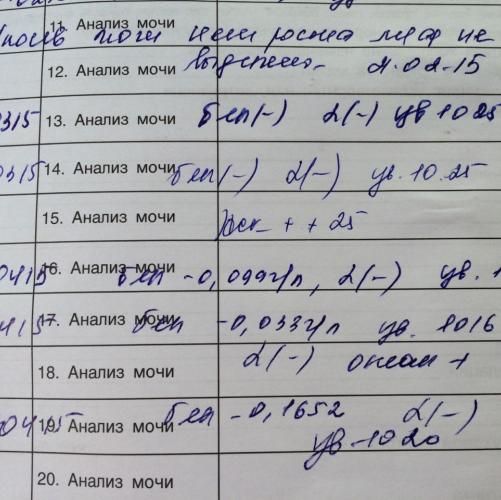 11. Анализ мочи
посев мочи нет роста мкф не
12. Анализ мочи выделено - 2.02.15
0315 13. Анализ мочи бел(-) L(-) ув 1025
0315 14. Анализ мочи бел(-) L(-) ув. 10.25
15. Анализ мочи ++ 25
0415 16. Анализ мочи бел -0,099г/л, L(-) ув. 1
0415 17. Анализ мочи бел -0,033г/л ув. 1016
18. Анализ мочи L(-) оксал +
0415 19. Анализ мочи бел -0,1652 L(-)
ув -1020
20. Анализ мочи